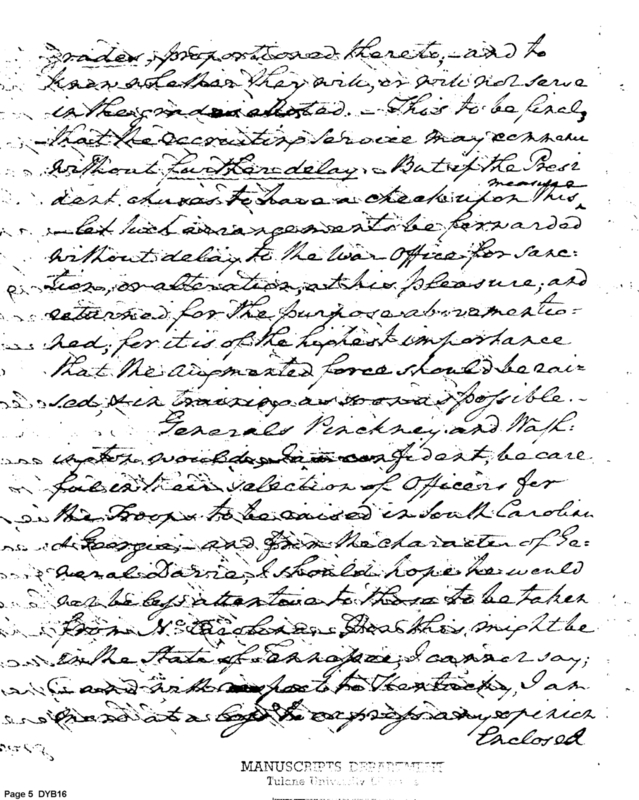 grades, proportioned thereto, – and to
know whether they will, or will not serve
in the grades allotted. – This to be final,
that the recruiting Service may commence
without further delay. – But if the Presi
dent chuses to have a check upon this
measure
– let such arrangement be forwarded
without delay to the War Office for sanc:
tion, or alteration, at his pleasure; and
returned for the purpose abovementio=
ned; for it is of the highest importance
that the augmented force should be rai=
sed, & in training as soon as possible. –
Generals Pinckney and Wash:
ington would, I am confident, be care
ful in their selection of Officers for
the Troops to be raised in South Carolina
& Georgia; – and from the character of Ge=
neral Davie, I should hope he would
not be less attentive to those to be taken
from No. Carolina. How this might be
in the State of Tennessee, I cannot say;
and with respect to Kentucky, I am
at a loss to express any opinion
Enclosed
MANUSCRIPTS DEPARTMENT
Tulane University
Page 5 DYB16